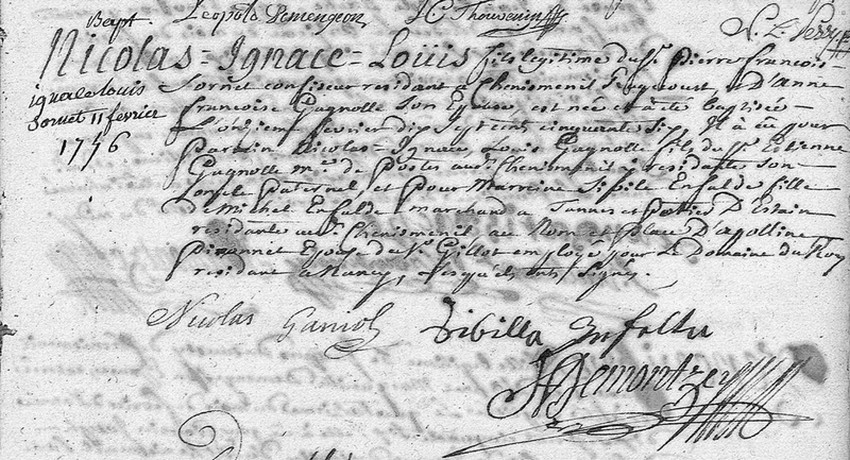 Bapt. Leopold Demengeon J C Thouvenin
Nicolas = Ignace = Loüis fils legitime du Sr. Pierre François
ignace louis
Sornet 11 fevrier
1756
Sornet confiseur residant a Chenimenil et D'anne
Francoise Gagnolle son Epouse, est née et a été baptisée
L'onzieme fevrier dix sept cent cinquante six, Il a eu pour
Parain Nicolas = Ignace Louis Gagnolle fils du Sr. Estienne
Gagnolle me. de Postes aud. Chenimenil y residante son
oncle Paternel, et pour Marreine Sipile Enfalde fille
de Michel Enfalde marchand a Tannes et Potier D'Estain
residante aud. Chenimenil au Nom et Place D'apolline
Epouse du Sr. Gillot employé pour Le Domaine du Roy
residant a Nancy, Lesquels ont signez.
Nicolas Ganiol Sibilla Enfaltin
Demontzey